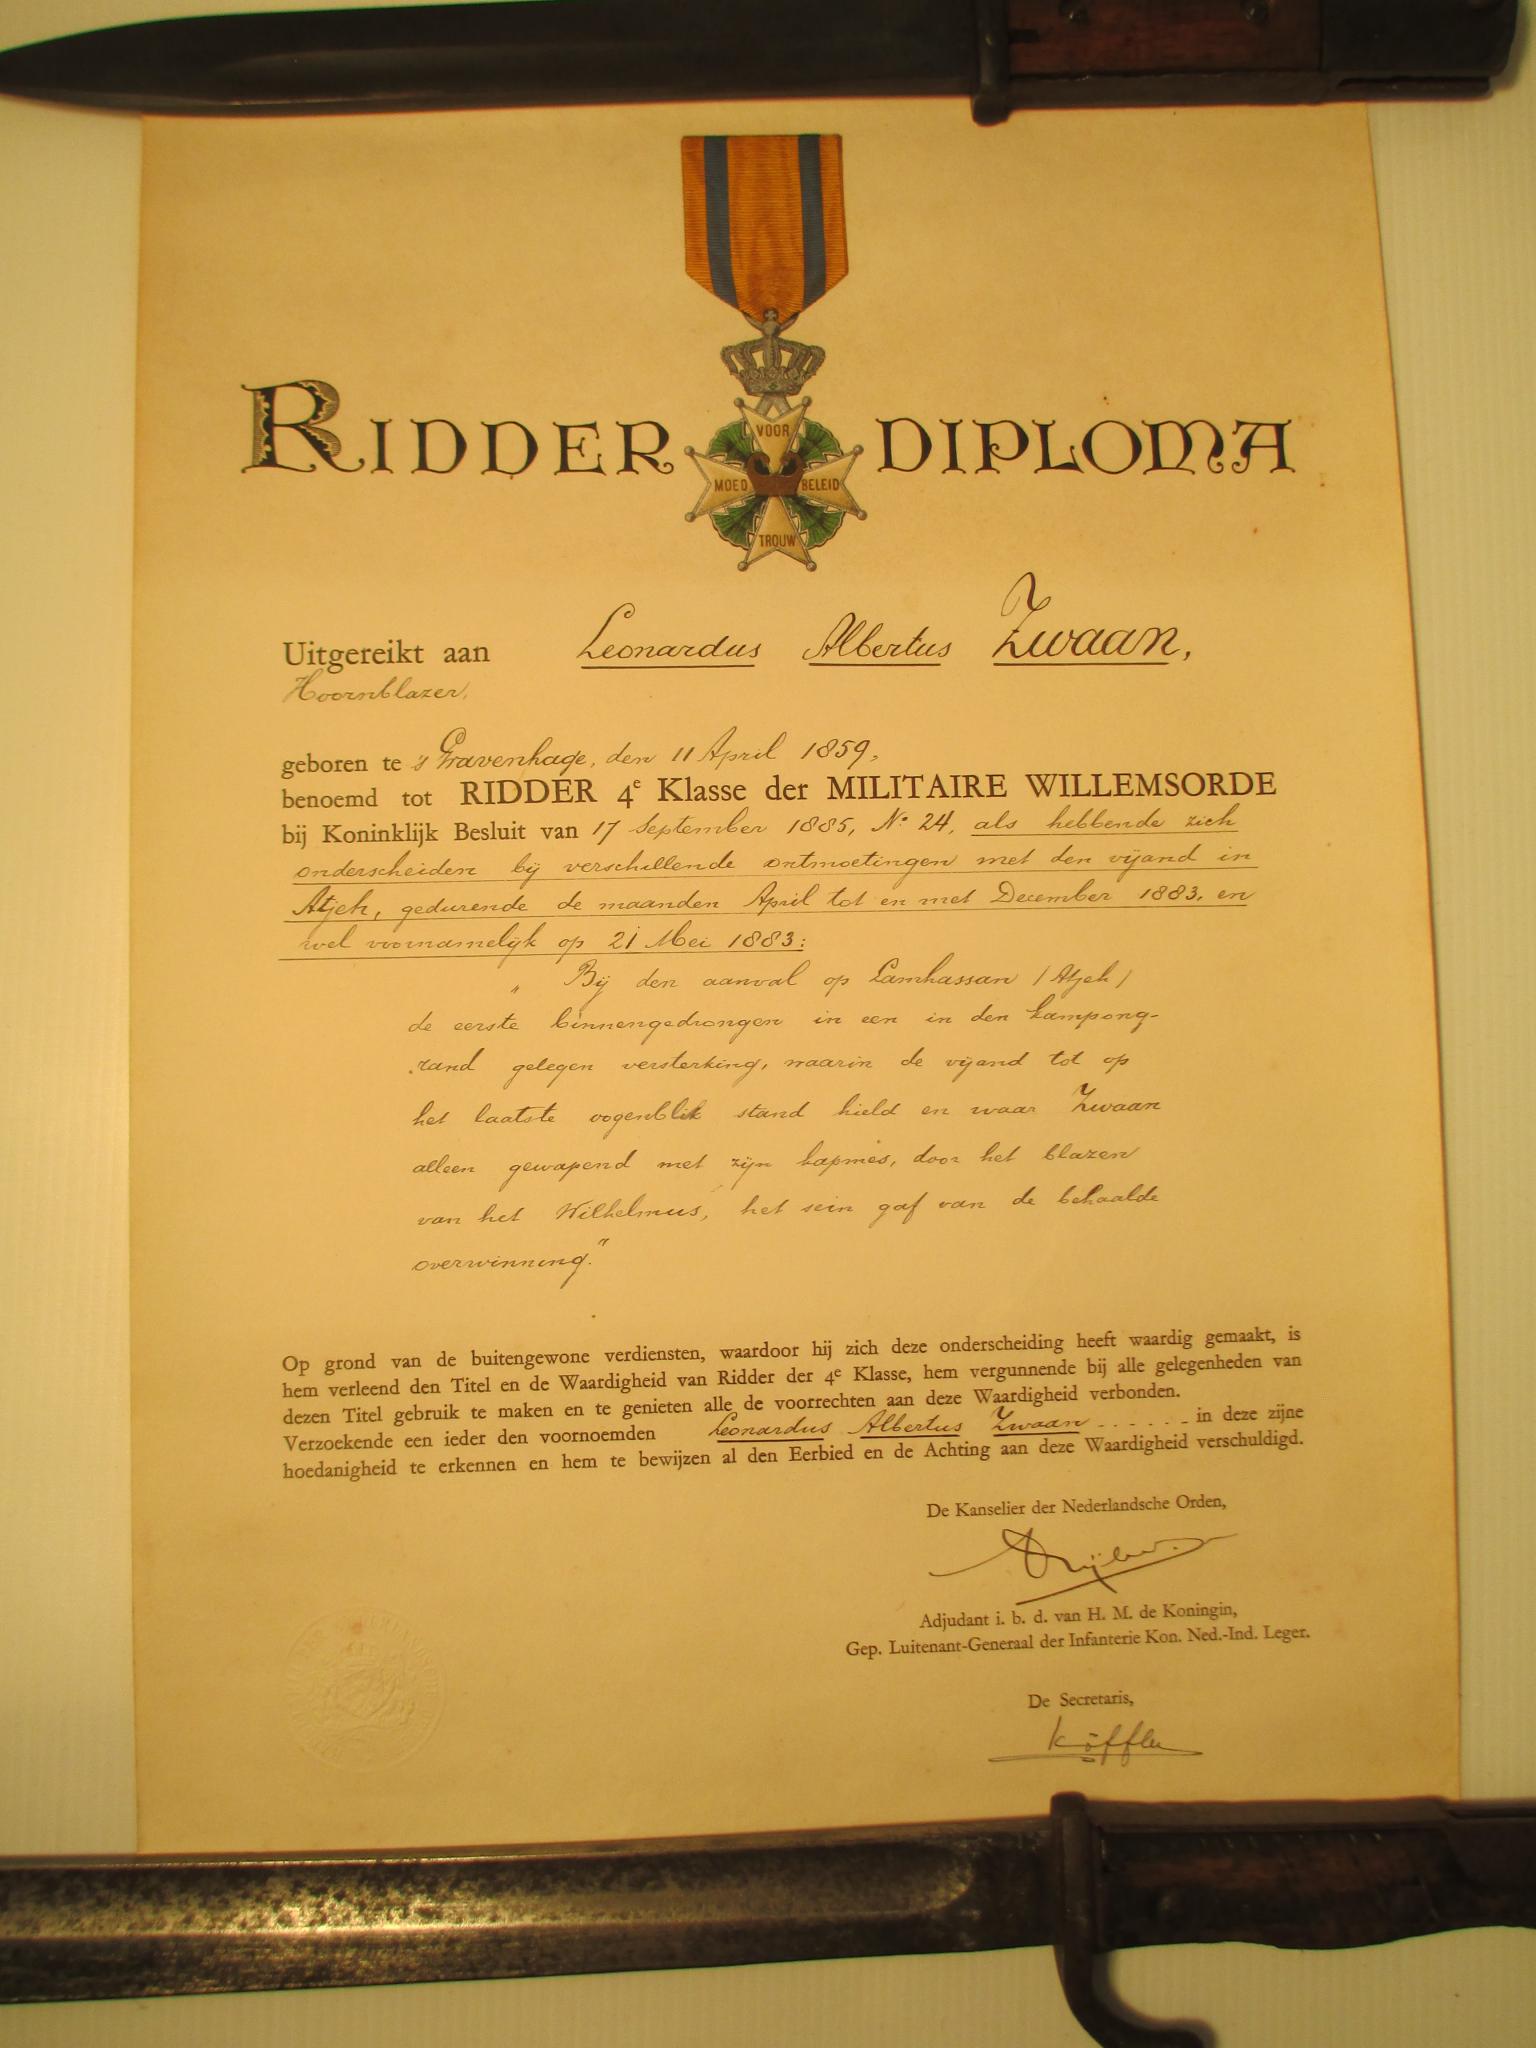 VOOR
MOED BELEID
TROUW
RIDDER DIPLOMA
Uitgereikt aan Leonardus Albertus Zwaan,
Hoornblazer,
geboren te 's Gravenhage, den 11 April 1859,
benoemd tot RIDDER 4e Klasse der MILITAIRE WILLEMSORDE
bij Koninklijk Besluit van 17 September 1885, No 24, als hebbende zich
onderscheiden bij verschillende ontmoetingen met den vijand in
Atjeh, gedurende de maanden April tot en met December 1883, en
wel voornamelijk op 21 Mei 1883:
„ Bij den aanval op Lamhassan (Atjeh)
de eerste binnengedrongen in een in den kampong-
rand gelegen versterking, waarin de vijand tot op
het laatste oogenblik stand hield en waar Zwaan
alleen gewapend met zijn kapmes, door het blazen
van het Wilhelmus, het sein gaf van de behaalde
overwinning."
Op grond van de buitengewone verdiensten, waardoor hij zich deze onderscheiding heeft waardig gemaakt, is
hem verleend den Titel en de Waardigheid van Ridder der 4e Klasse, hem vergunnende bij alle gelegenheden van
dezen Titel gebruik te maken en te genieten alle de voorrechten aan deze Waardigheid verbonden.
Verzoekende een ieder den voornoemden Leonardus Albertus Zwaan ...... in deze zijne
hoedanigheid te erkennen en hem te bewijzen al den Eerbied en de Achting aan deze Waardigheid verschuldigd.
De Kanselier der Nederlandsche Orden,
Adjudant i. b. d. van H. M. de Koningin,
Gep. Luitenant-Generaal der Infanterie Kon. Ned.-Ind. Leger.
De Secretaris,
Köffler